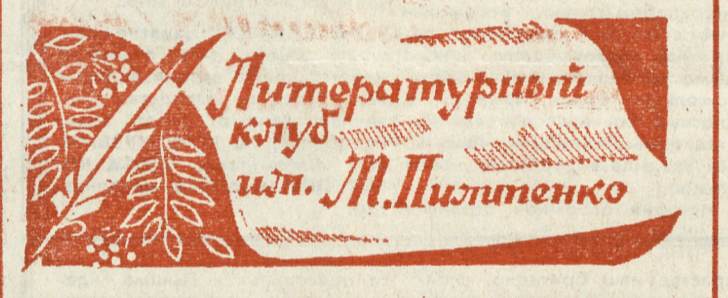 Литературный
клуб
им. М. Пилипенко